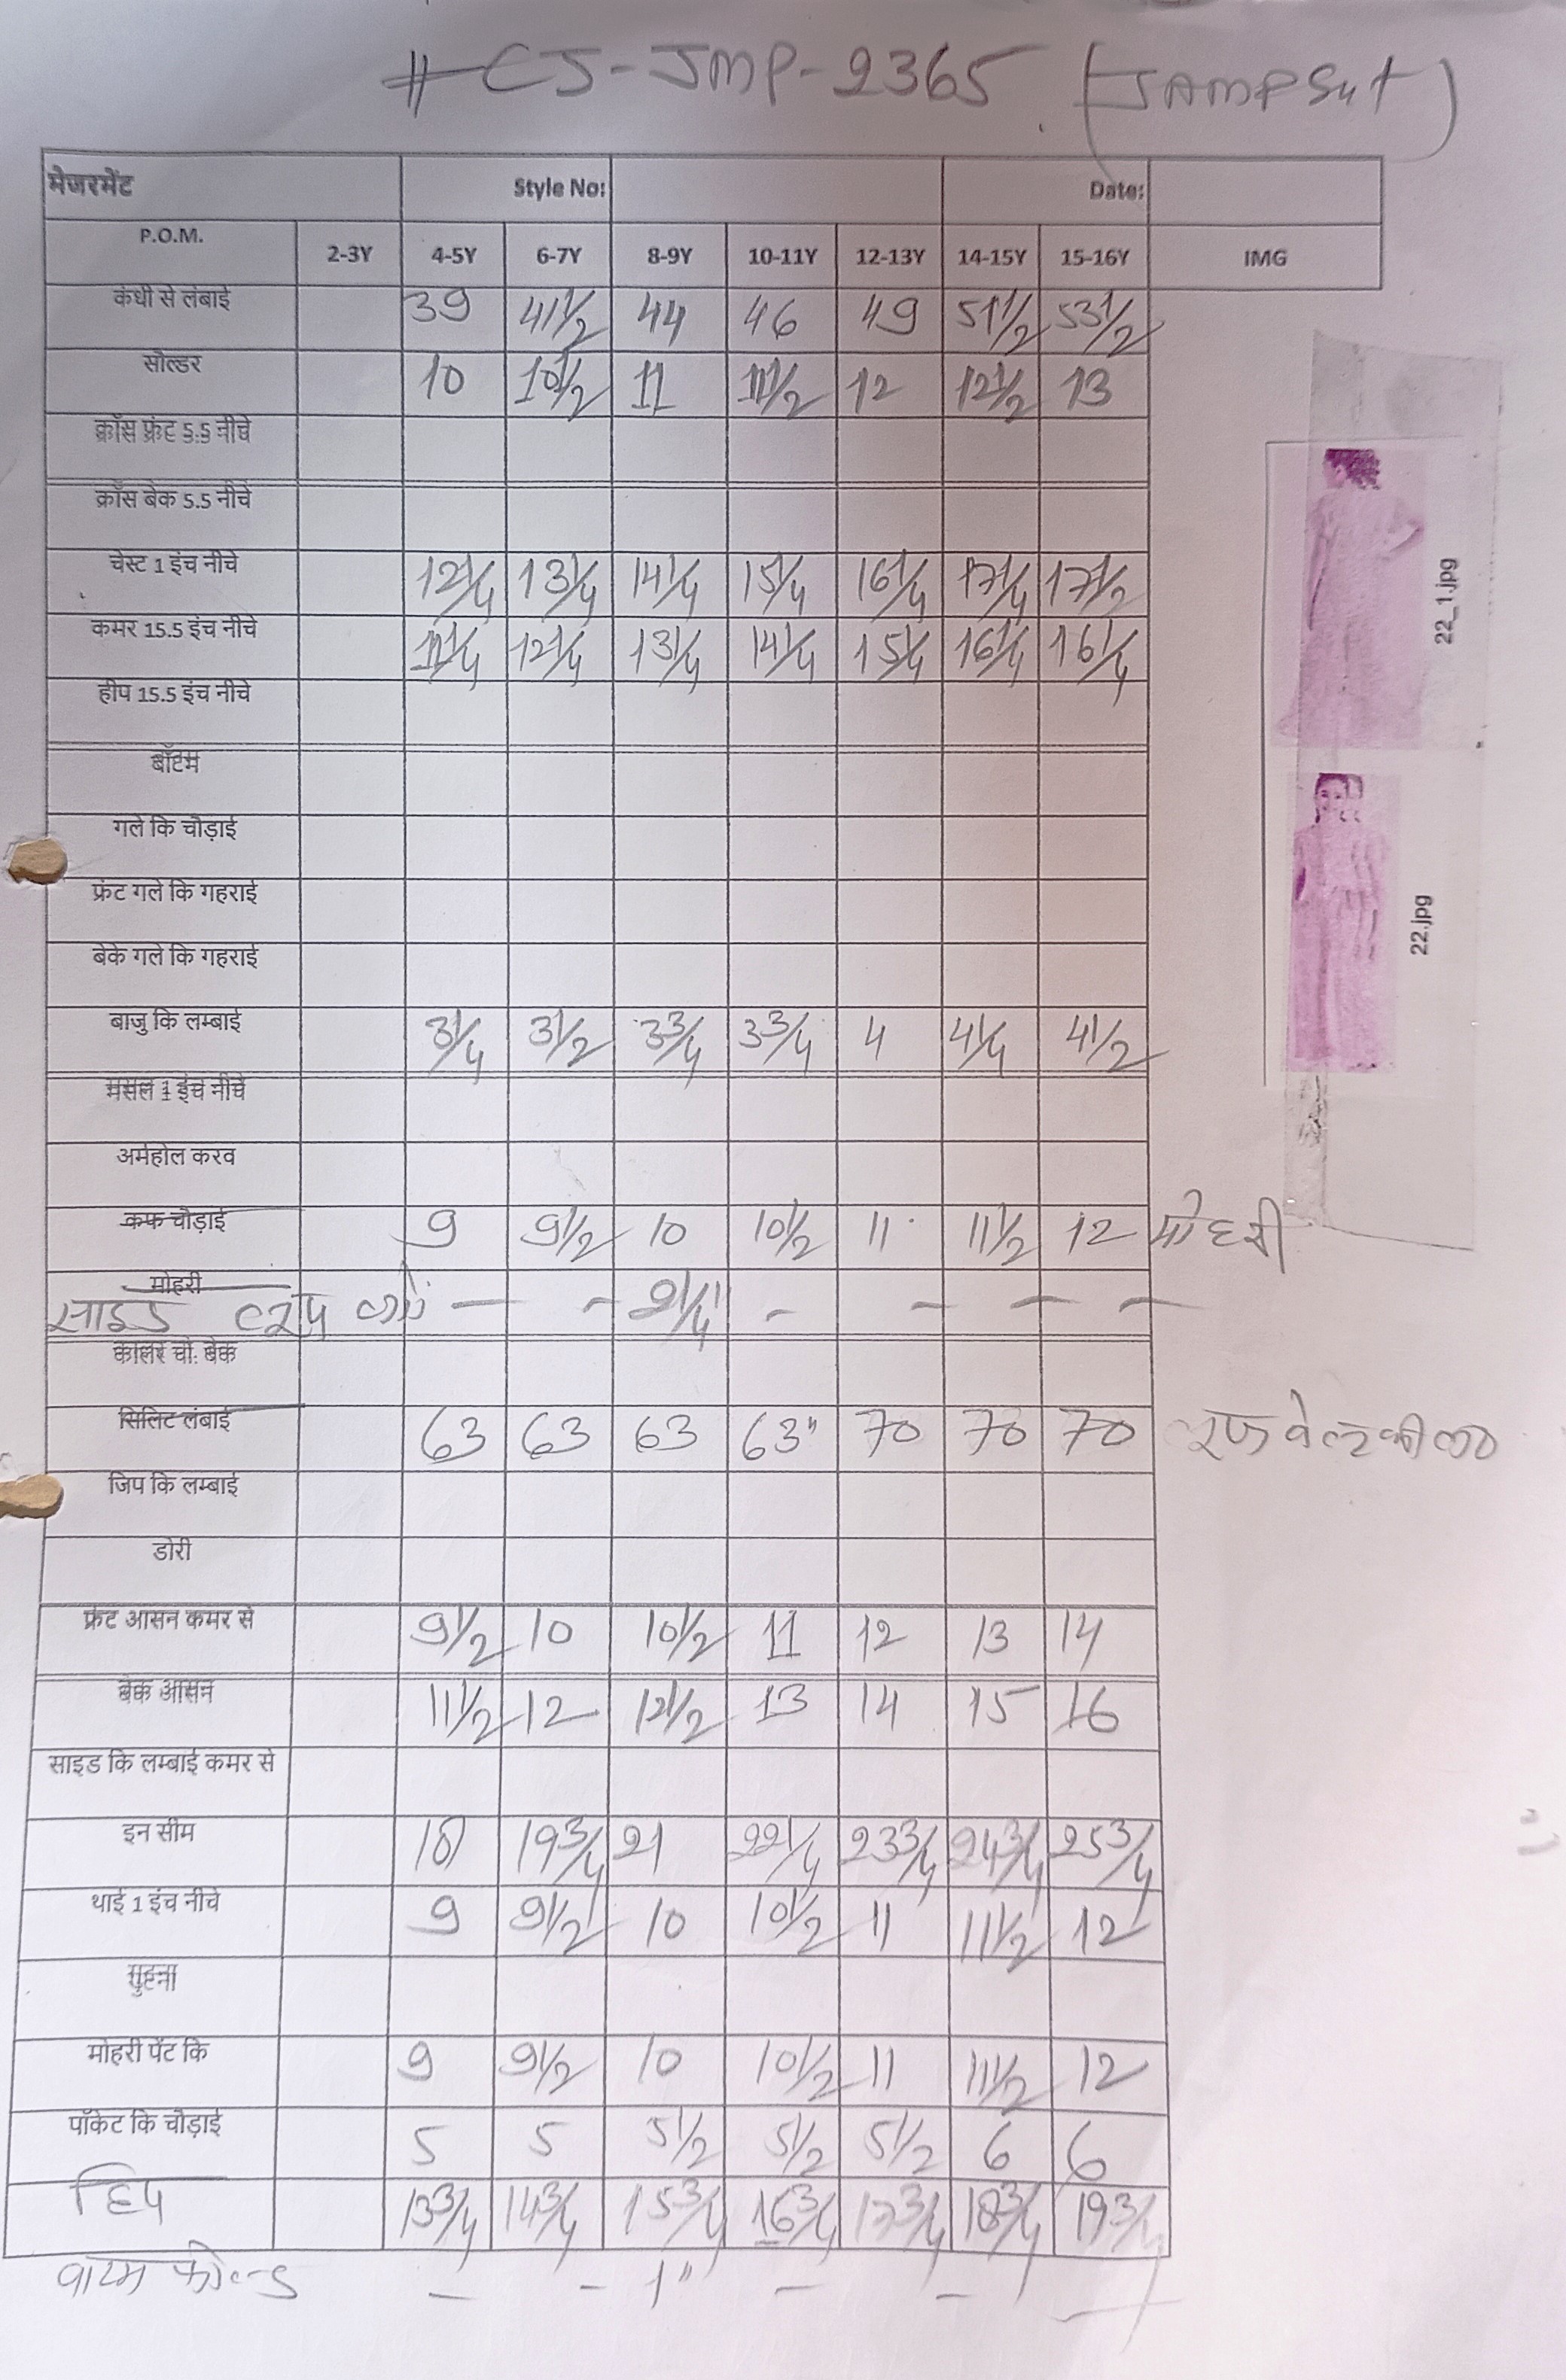 # CJ-JMP-2365 (JAMPSut)
मेजरमेंट Style No: Date:
P.O.M. 2-3Y 4-5Y 6-7Y 8-9Y 10-11Y 12-13Y 14-15Y 15-16Y IMG
कंधी से लंबाई 39 41 1/2 44 46 49 51 1/2 53 1/2
सोल्डर 10 10 1/2 11 11 1/2 12 12 1/2 13
क्रॉस फ्रंट 5.5 नीचे
क्रॉस बेक 5.5 नीचे
चेस्ट 1 इंच नीचे 12 1/4 13 1/4 14 1/4 15 1/4 16 1/4 17 1/4 17 1/2
कमर 15.5 इंच नीचे 11 1/4 12 1/4 13 1/4 14 1/4 15 1/4 16 1/4 16 1/4
हीप 15.5 इंच नीचे
बॉटम
गले कि चौड़ाई
फ्रंट गले कि गहराई
बेके गले कि गहराई
बाजु कि लम्बाई 3 1/4 3 1/2 3 3/4 3 3/4 4 4 1/4 4 1/2
मसल 1 इंच नीचे
अर्महोल करव
कफ चौड़ाई 9 9 1/2 10 10 1/2 11 11 1/2 12 मोहरी
मोहरी
साइड - - 2 1/4" - - - -
कालर चो. बेक
सिलिट लंबाई 63 63 63 63" 70 70 70
जिप कि लम्बाई
डोरी
फ्रंट आसन कमर से 9 1/2 10 10 1/2 11 12 13 14
बेक आसन 11 1/2 12 12 1/2 13 14 15 16
साइड कि लम्बाई कमर से
इन सीम 18 19 3/4 21 22 1/4 23 3/4 24 3/4 25 3/4
थाई 1 इंच नीचे 9 9 1/2 10 10 1/2 11 11 1/2 12
घुटना
मोहरी पेंट कि 9 9 1/2 10 10 1/2 11 11 1/2 12
पॉकेट कि चौड़ाई 5 5 5 1/2 5 1/2 5 1/2 6 6
हिप 13 3/4 14 3/4 15 3/4 16 3/4 17 3/4 18 3/4 19 3/4
वाटम फोल्ड - - 1" - - -
22_1.jpg
22.jpg